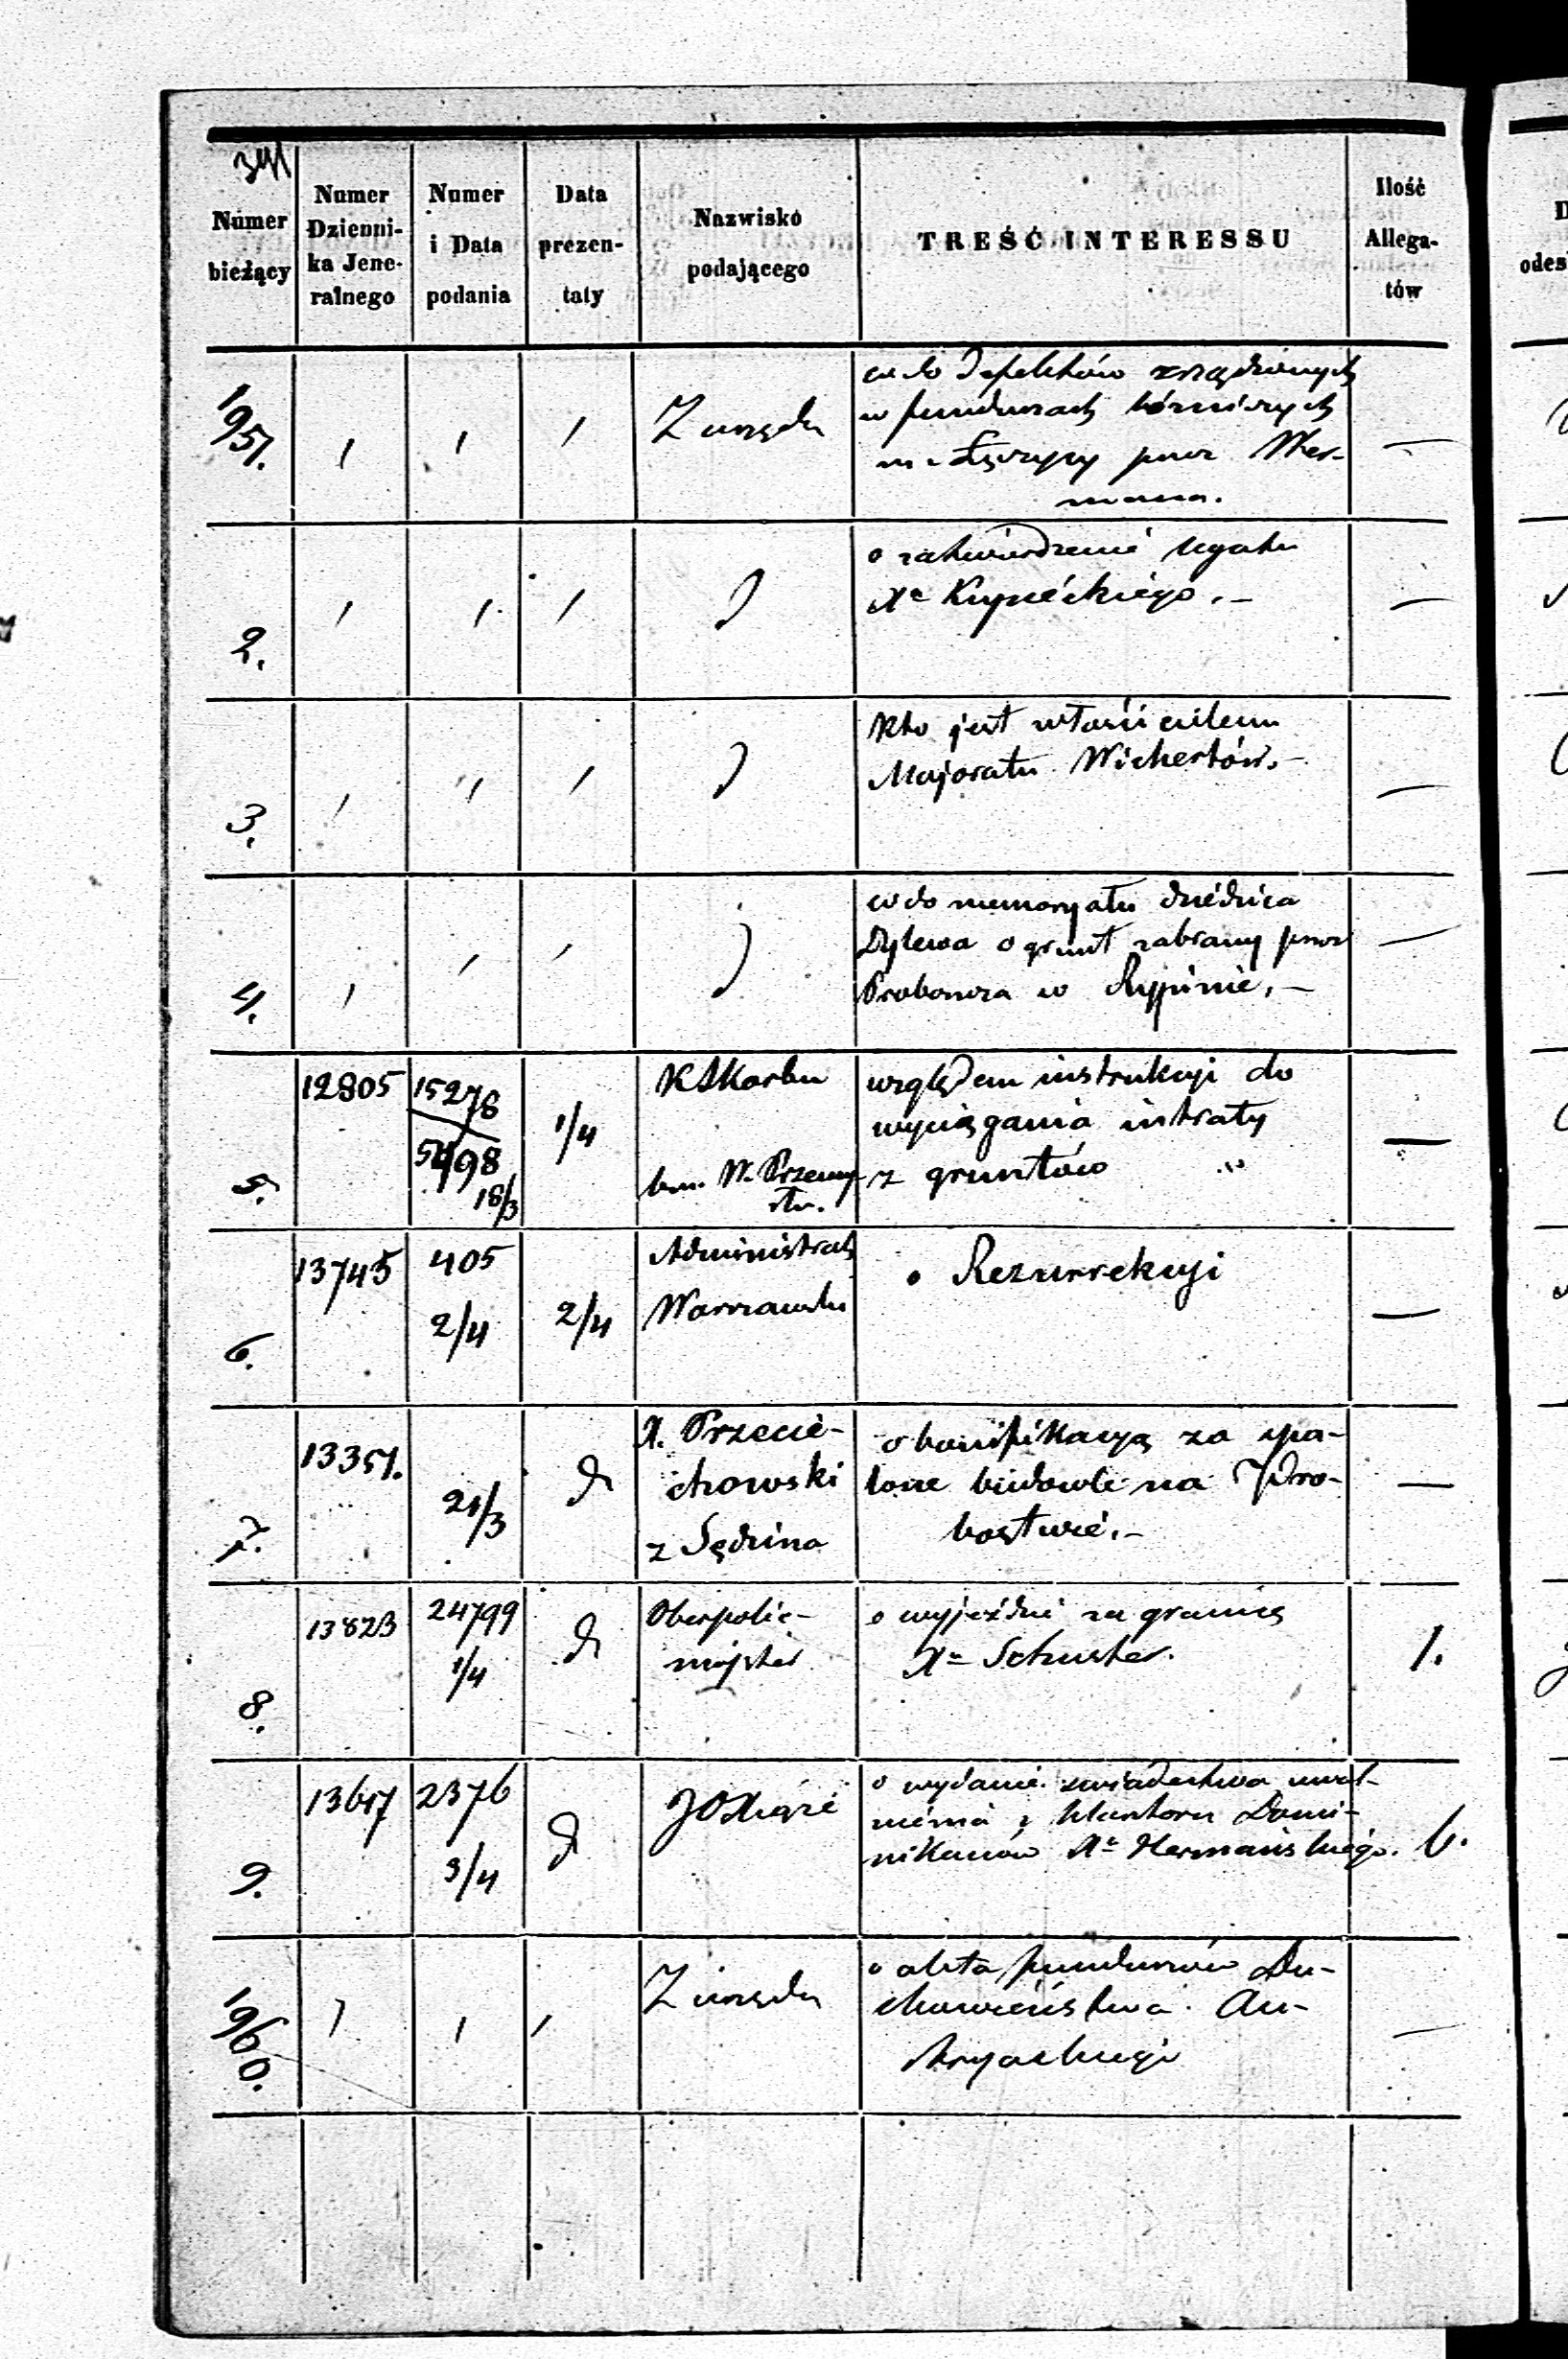 Numer
bieżący
Numer
Dzienni-
ka Jene-
ralnego
Numer
i Data
podania
Data
prezen-
taty
Nazwisko
podającego
TREŚĆ INTERESSU
Ilość
Allega-
tów
1951. Z urzędu co do defektów zrządzonych
w funduszach
w Łęczycy przez Wer-
mana. —
2. o zatwierdzenie legatu
Xa —
3. Kto jest właścicielem
Majoratu Wichertów. — —
4. co do memoryału dziedzica
Dylewa o grunt zabrany przez
Proboszcza w Rypinie. — —
5. 12805 15276
5498
18/3 1/4 K Skarbu
W. Przemy-
słu. względem instrukcyi do
wyciągania intraty
z gruntów —
6. 13745 405
2/4 2/4 Administrat
Warszawski o Rezurrekcyi —
7. 13351. 21/3 X. Przecie-
chowski
z Sędzina o bonifikacyą za spa-
lone budowle na Pro-
bostwie. — —
8. 13823 24799
1/4 Oberpolic-
majster o wyjeździe za granicę
Xa Schuster. 1.
9. 13617 2376
3/4 JO Xiąże o wydanie świadectwa uwol-
nienia z klasztoru Domi-
nikanów Xa Hermańskiego. 6.
1960. Z urzędu o akta funduszów Du-
chowieństwa Au-
stryackiego —
D
odes